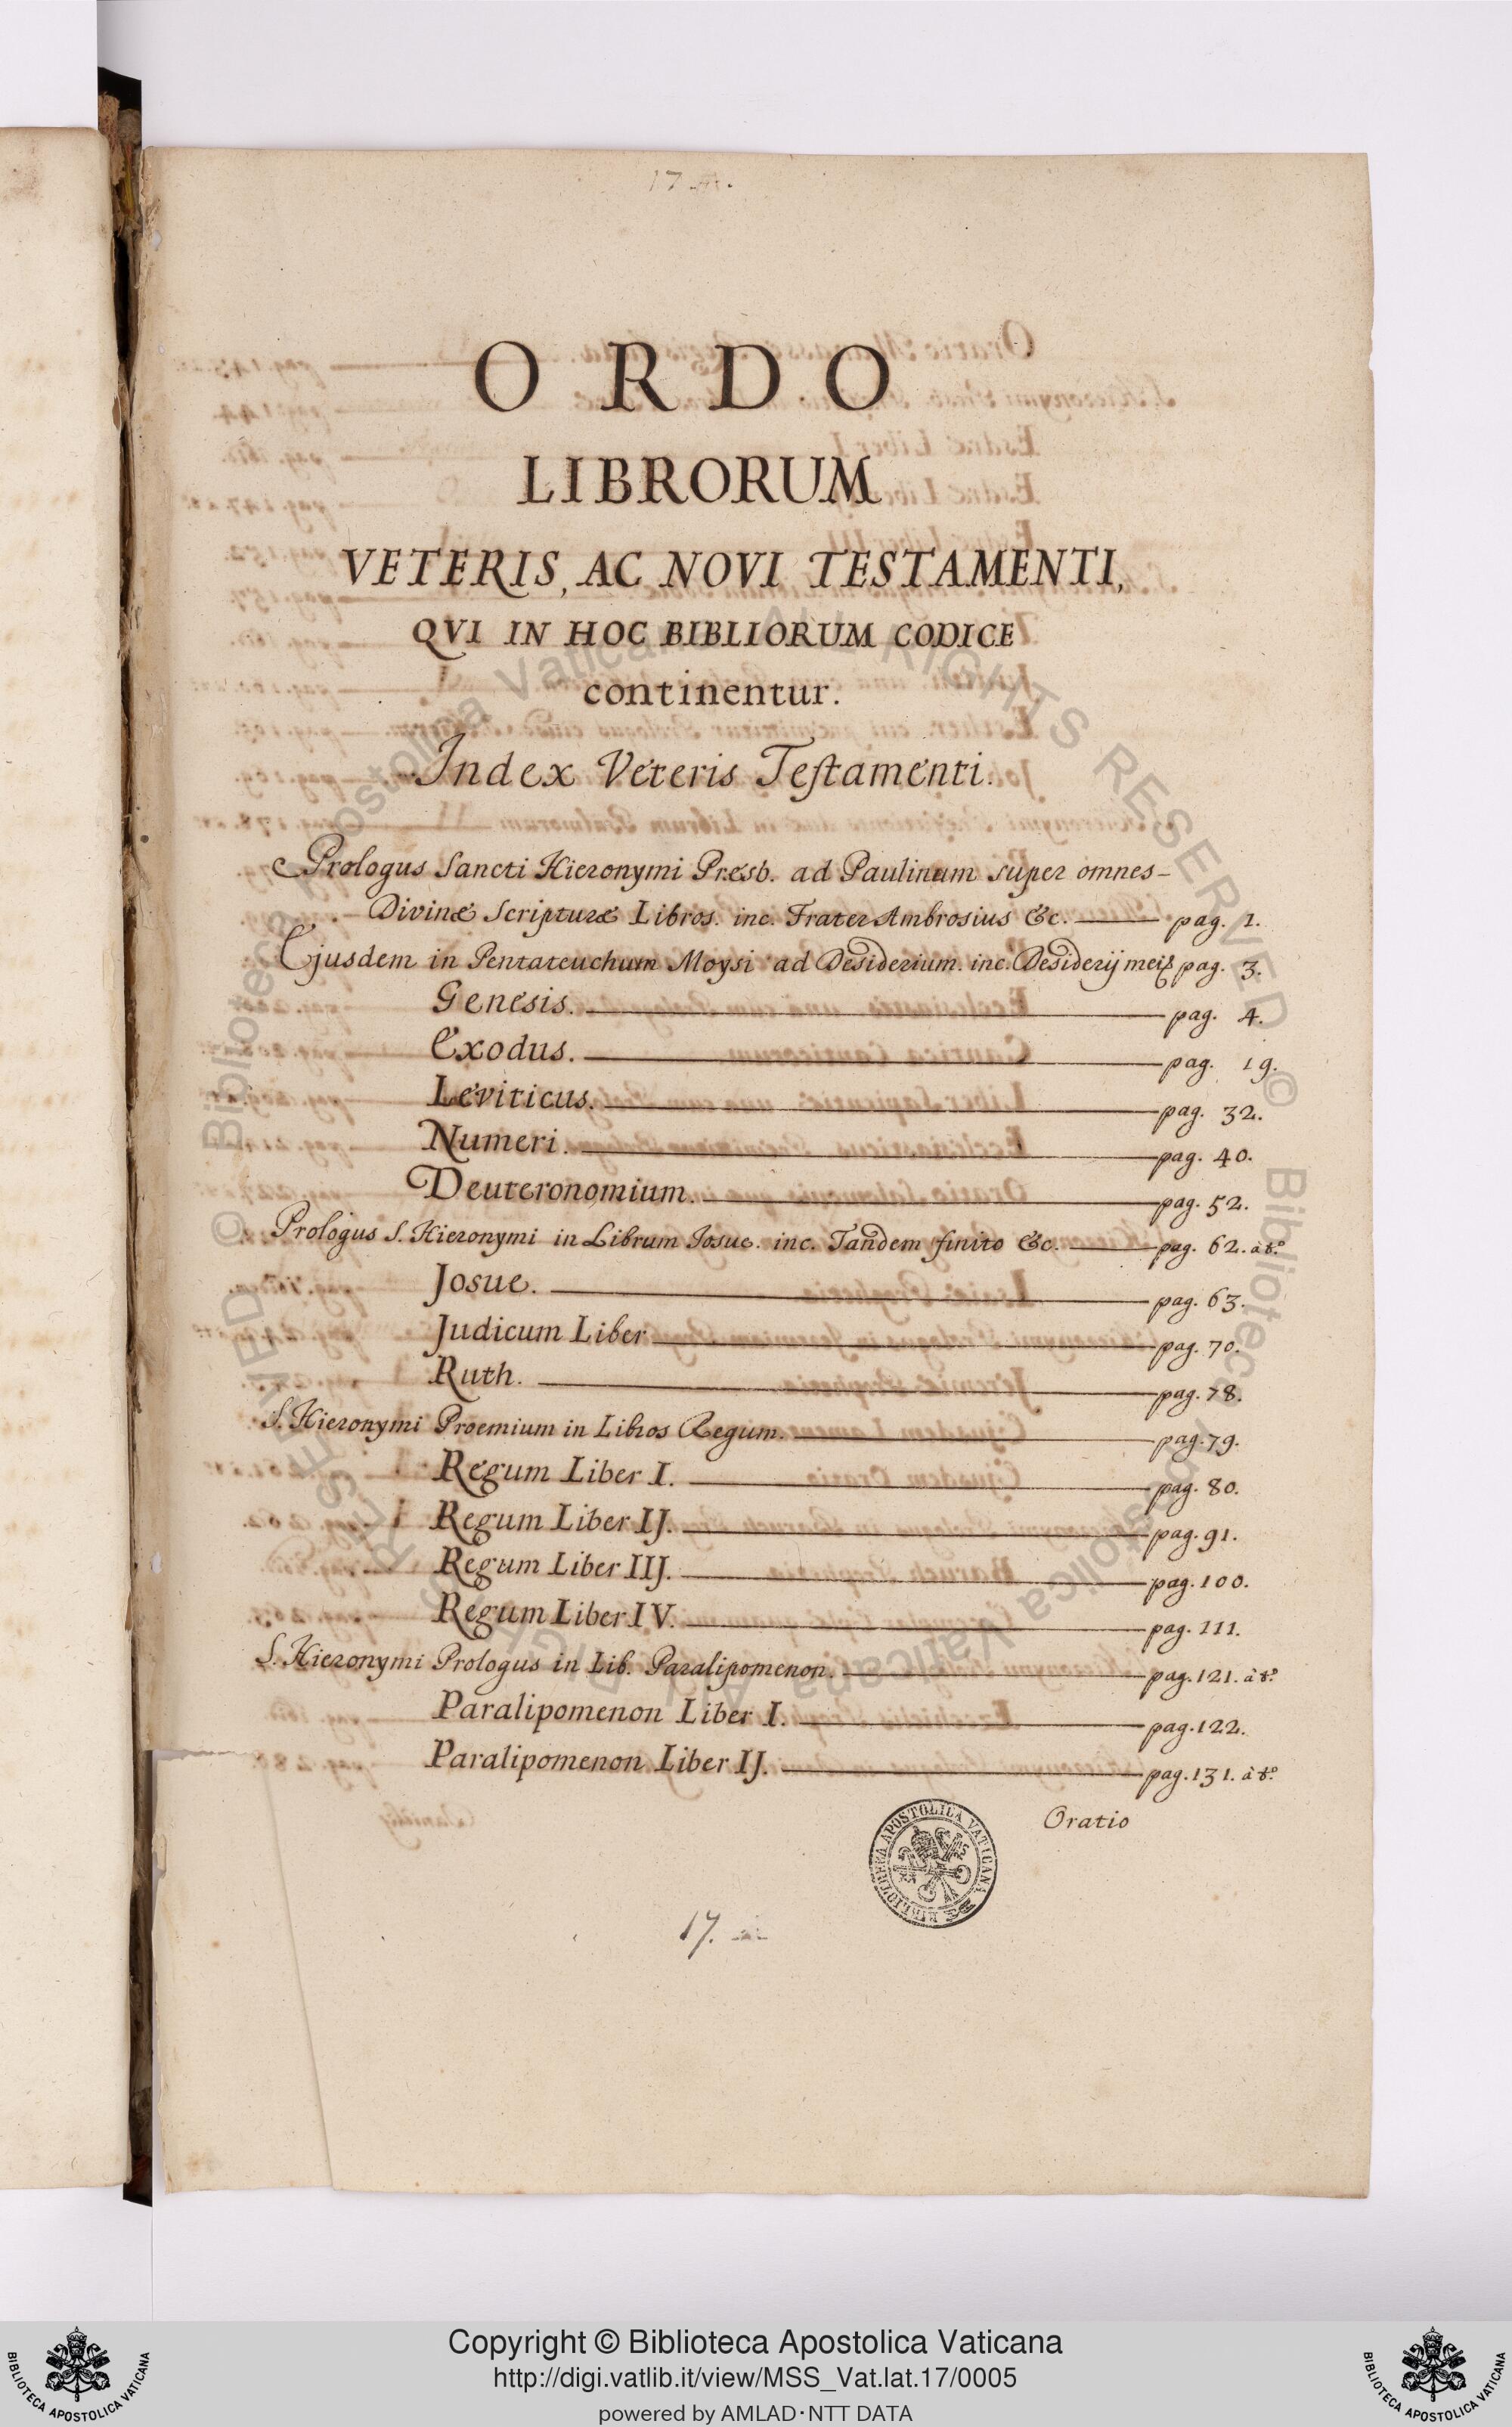 17
ORDO
LIBRORUM
VETERIS, AC NOVI TESTAMENTI,
QVI IN HOC BIBLIORUM CODICE
continentur.
Index Veteris Testamenti.
Prologus Sancti Hieronymi Presb. ad Paulinum super omnes-
Divinæ Scripturæ Libros. inc. Frater Ambrosius &c. pag. 1.
Ejusdem in Pentateuchum Moysi ad Desiderium. inc. Desiderij mei pag. 3.
Genesis. pag. 4.
Exodus. pag. 19.
Leviticus. pag. 32.
Numeri. pag. 40.
Deuteronomium. pag. 52.
Prologus S. Hieronymi in Librum Josue. inc. Tandem finito &c. pag. 62. à t.º
Josue. pag. 63.
Judicum Liber pag. 70.
Ruth. pag. 78.
S. Hieronymi Proemium in Libros Regum. pag. 79.
Regum Liber I. pag. 80.
Regum Liber IJ. pag. 91.
Regum Liber IIJ. pag. 100.
Regum Liber IV. pag. 111.
S. Hieronymi Prologus in Lib. Paralipomenon. pag. 121. à t.º
Paralipomenon Liber I. pag. 122.
Paralipomenon Liber IJ. pag. 131. à t.º
Oratio
BIBLIOTHECA APOSTOLICA VATICANA
17.
© Biblioteca Apostolica Vaticana ALL RIGHTS RESERVED © Biblioteca Apostolica Vaticana ALL RIGHTS RESERVED
Copyright © Biblioteca Apostolica Vaticana
http://digi.vatlib.it/view/MSS_Vat.lat.17/0005
powered by AMLAD·NTT DATA
BIBLIOTECA APOSTOLICA VATICANA
BIBLIOTECA APOSTOLICA VATICANA